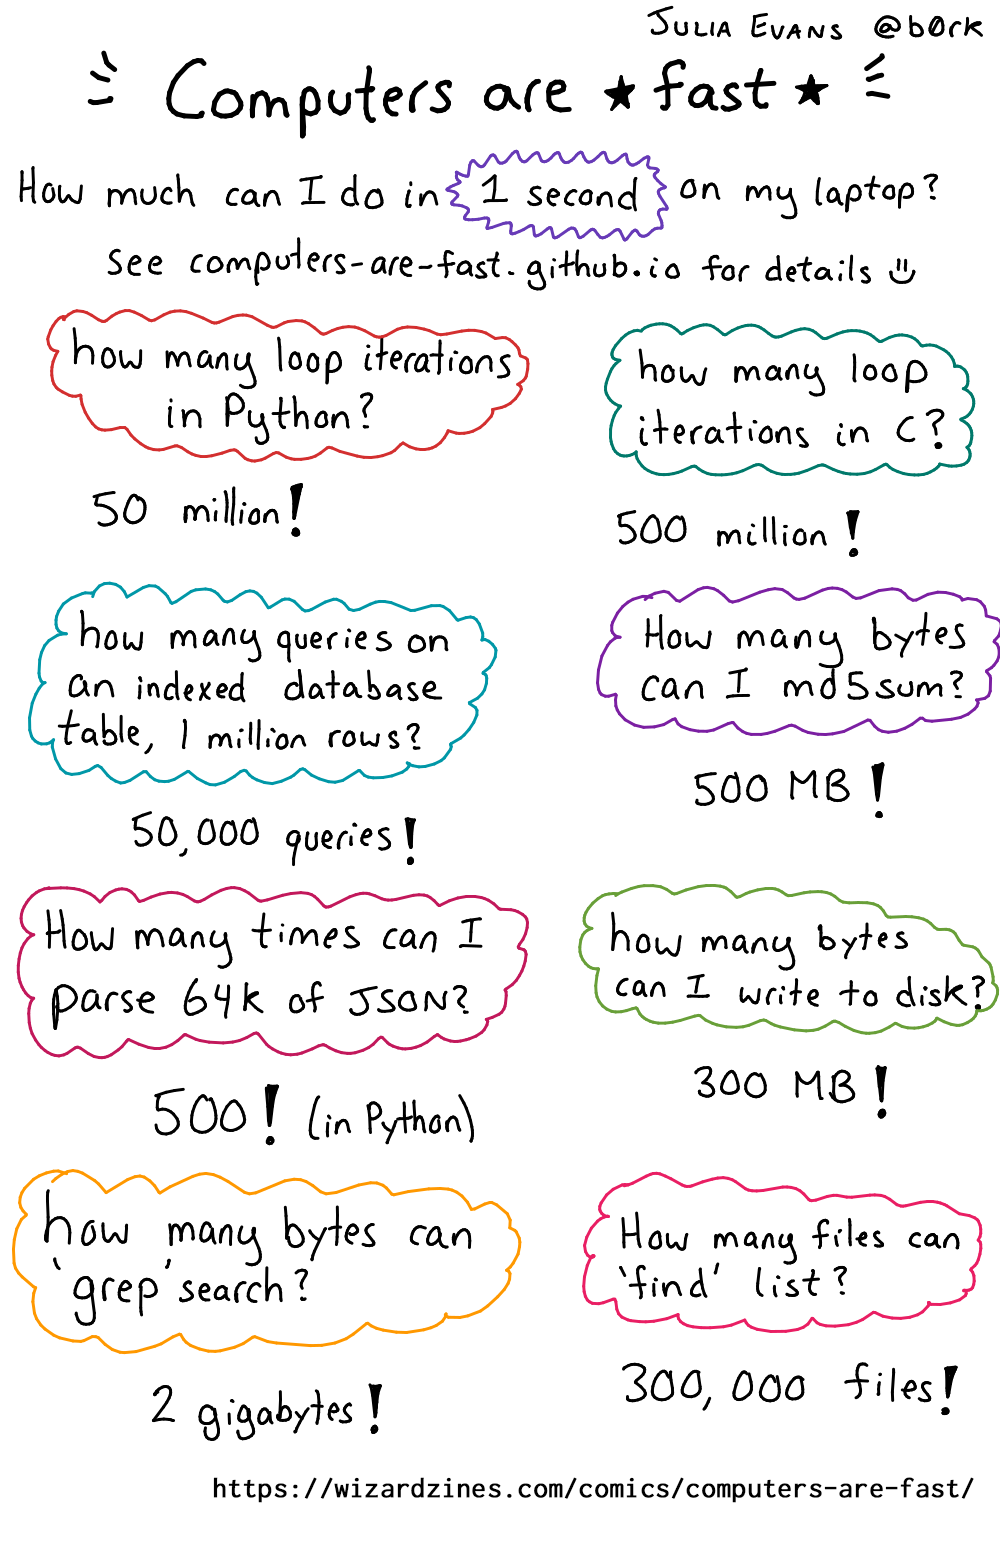 JULIA EVANS @b0rk
Computers are ★ fast ★
How much can I do in 1 second on my laptop?
see computers-are-fast.github.io for details
how many loop iterations
in Python?
50 million!
how many loop
iterations in C?
500 million!
how many queries on
an indexed database
table, 1 million rows?
50,000 queries!
How many bytes
can I md5sum?
500 MB!
How many times can I
parse 64k of JSON?
500! (in Python)
how many bytes
can I write to disk?
300 MB!
how many bytes can
'grep' search?
2 gigabytes!
How many files can
'find' list?
300,000 files!
https://wizardzines.com/comics/computers-are-fast/